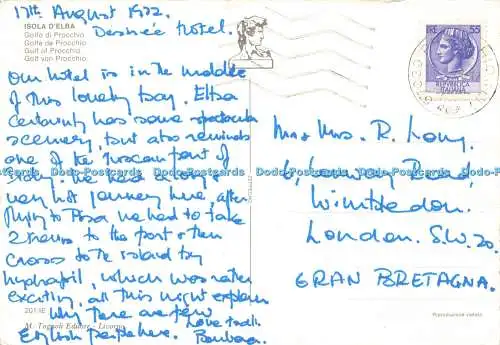 17th August 1972.
Desirée Hotel.
ISOLA D'ELBA
Golfo di Procchio
Golfe de Procchio
Gulf of Procchio
Golf von Procchio
Our hotel is in the middle
of this lovely bay. Elba
certainly has some spectacular
scenery, but also reminds
one of the Tuscan part of
Italy. We had a
very hot journey here, after
flying to Pisa we had to take
2 to the port & then
cross to the island by
hydrofoil, which was rather
exciting, all this might explain
why there are few
English people here.
Love to all.
Barbara.
201/IE
M. Tognoli Editore - Livorno
Mr & Mrs. R. Long,
6, Road,
Wimbledon.
London. S.W.20.
GRAN BRETAGNA.
Riproduzione vietata
LIRE 55
REPUBBLICA
ITALIANA
Dodo-Postcards Dodo-Postcards Dodo-Postcards Dodo-Postcards